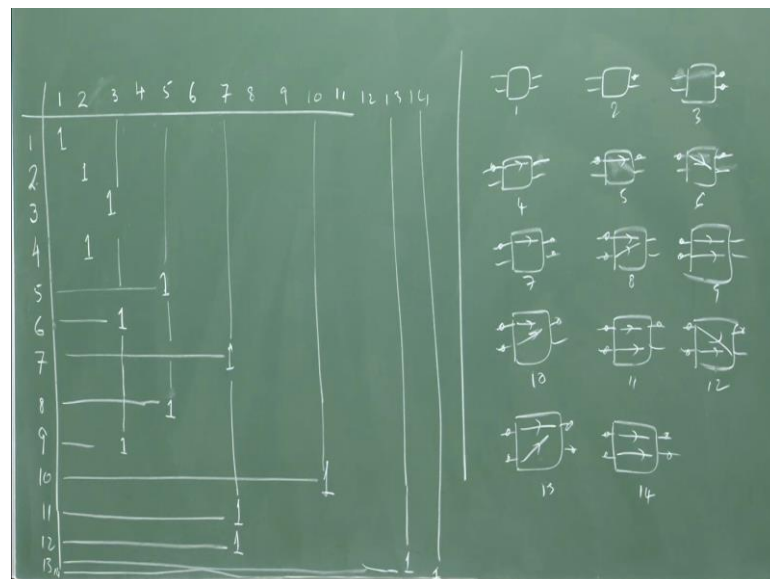 1 2 3 4 5 6 7 8 9 10 11 12 13 14
1 1
2 1
3 1
4 1
5 1
6 1
7 1
8 1
9 1
10 1
11 1
12 1
13 1
14 1
1 2 3
4 5 6
7 8 9
10 11 12
13 14